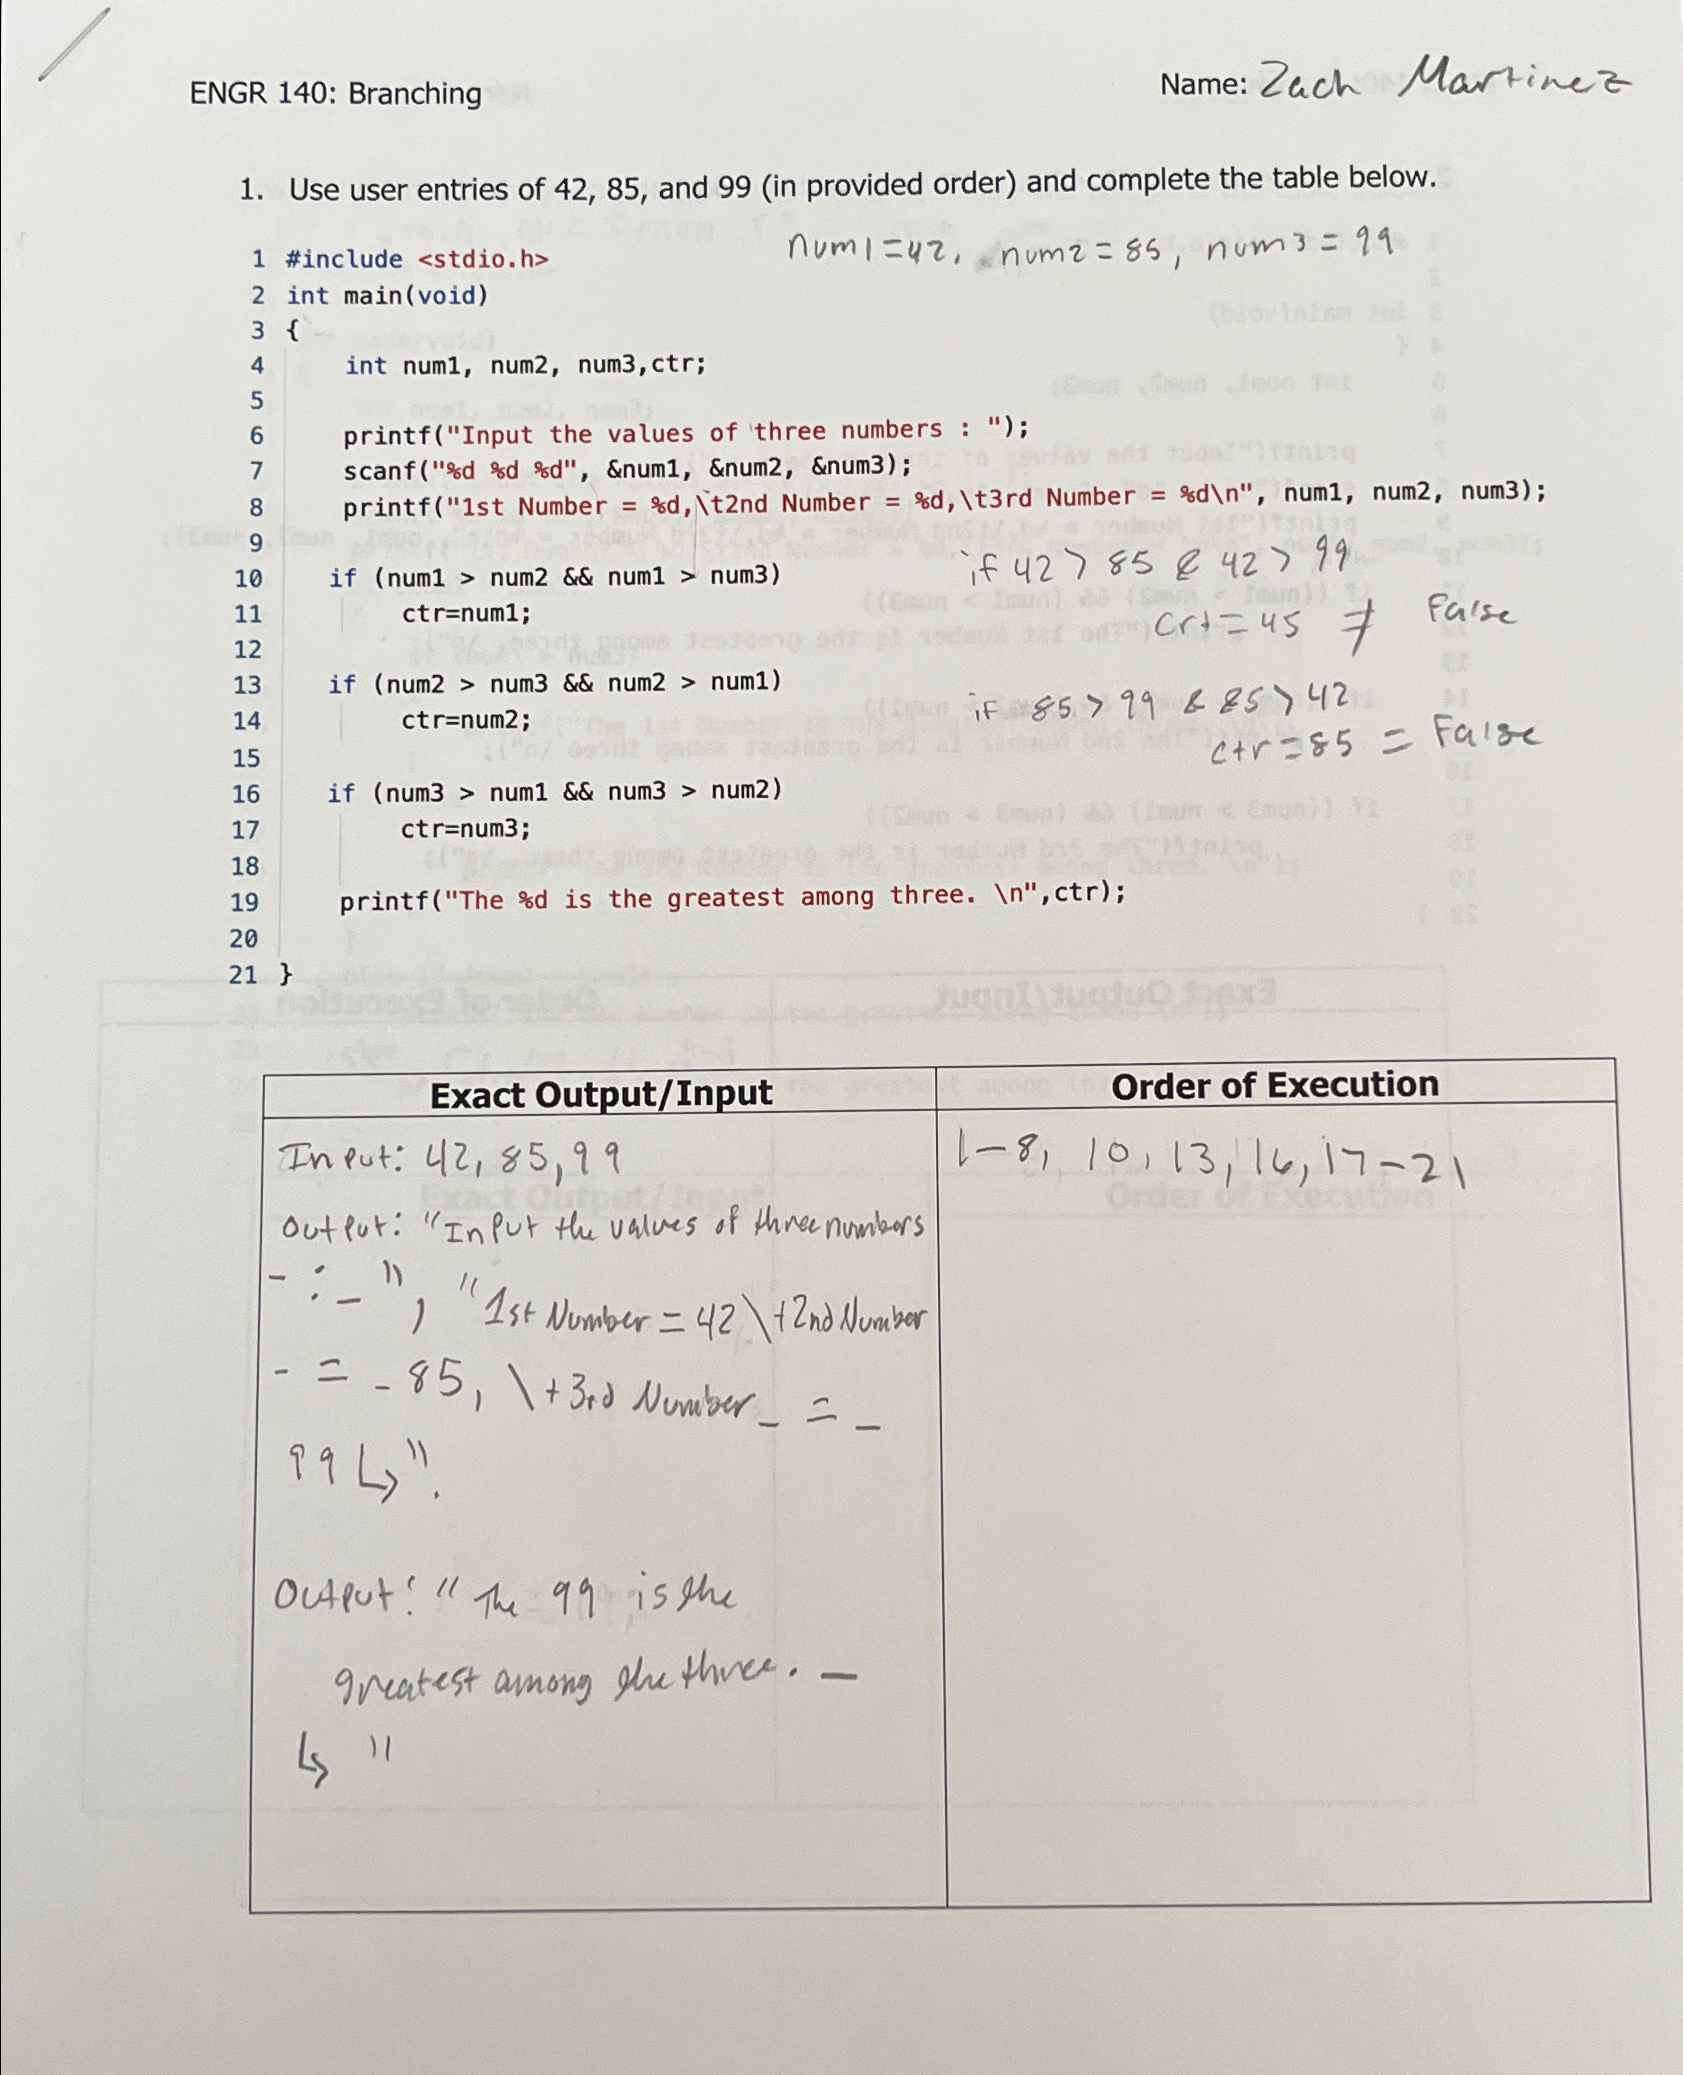 ENGR 140: Branching
Name: Zach Martinez
1. Use user entries of 42, 85, and 99 (in provided order) and complete the table below.
num1=42, num2=85, num3=99
1 #include <stdio.h>
2 int main(void)
3 {
4 int num1, num2, num3,ctr;
5
6 printf("Input the values of three numbers : ");
7 scanf("%d %d %d", &num1, &num2, &num3);
8 printf("1st Number = %d,\t2nd Number = %d,\t3rd Number = %d\n", num1, num2, num3);
9
10 if (num1 > num2 && num1 > num3)
if 42 > 85 & 42 > 99
11 ctr=num1;
crt=45 ≠ False
12
13 if (num2 > num3 && num2 > num1)
if 85 > 99 & 85 > 42
14 ctr=num2;
ctr=85 = False
15
16 if (num3 > num1 && num3 > num2)
17 ctr=num3;
18
19 printf("The %d is the greatest among three. \n",ctr);
20
21 }
Exact Output/Input
Order of Execution
Input: 42, 85, 99
1-8, 10, 13, 16, 17-21
Output: "Input the values of three numbers
- : _ ", "1st Number = 42 \t2nd Number
- = - 85, \t3rd Number _ = _
99 ↳".
Output: "The 99 is the
greatest among the three. _
↳ "